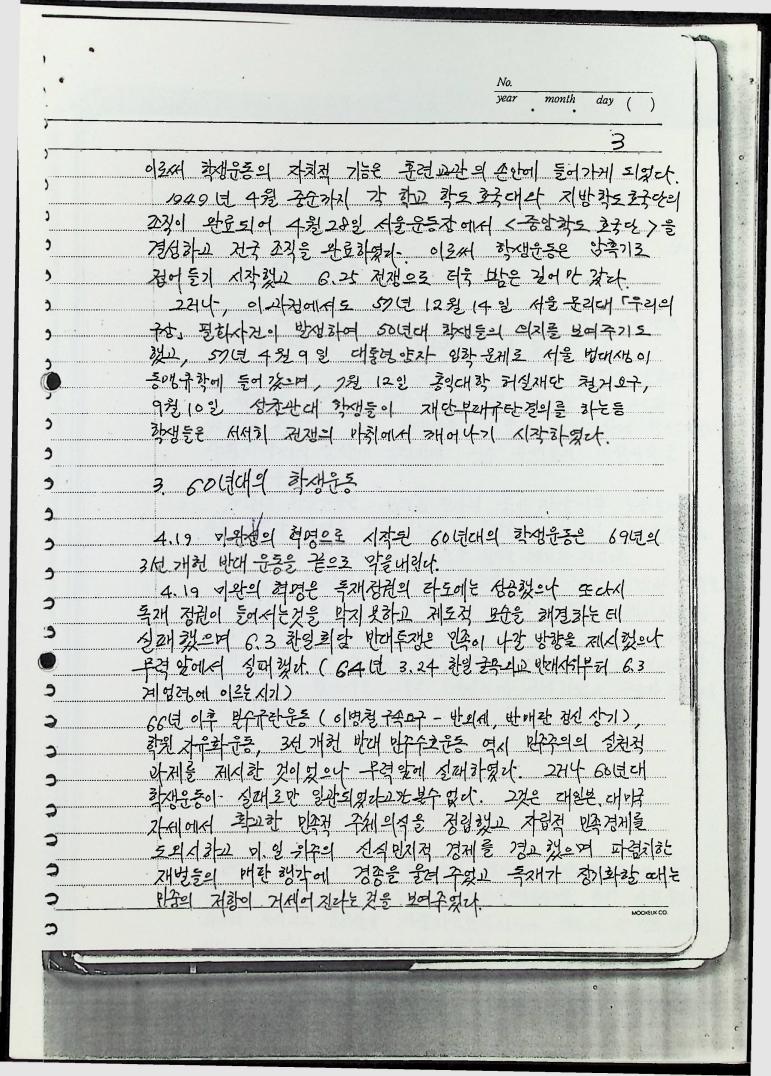 No.
year . month . day ( )
3
이로써 학생운동의 자치적 기능은 훈련교관의 손안에 들어가게 되었다.
1949년 4월 중순까지 각 학교 학도호국대와 지방학도호국단의
조직이 완료되어 4月 28일 서울운동장에서 <중앙학도 호국단>을
결성하고 전국 조직을 완료하였다. 이로써 학생운동은 암흑기로
접어들기 시작했고 6.25 전쟁으로 더욱 밤은 길어만 갔다.
그러나, 이 과정에서도 57년 12월 14일 서울 문리대 「우리의
구상」 필화사건이 발생하여 50년대 학생들의 의지를 보여주기도
했고, 57년 4월 9일 대통령양자 입학문제로 서울 법대생이
동맹휴학에 들어갔으며, 7월 12일 홍익대학 퇴실재단 철거요구,
9월 10일 학생들이 재단부패규탄결의를 하는등
학생들은 서서히 전쟁의 마취에서 깨어나기 시작하였다.
3. 60년대의 학생운동
4.19 미완의 혁명으로 시작된 60년대의 학생운동은 69년의
3선개헌 반대 운동을 끝으로 막을내린다.
4.19 미완의 혁명은 독재정권의 타도에는 성공했으나 또다시
독재 정권이 들어서는것을 막지못하고 제도적 모순을 해결하는데
실패했으며 6.3 한일회담 반대투쟁은 민족이 나갈 방향을 제시했으나
무력앞에서 실패했다. (64년 3.24 한일굴욕외교 반대시위부터 6.3
계엄령에 이르는시기)
66년 이후 밀수규탄운동 (이병철 구속요구 - 반외세, 반매판 정신 상기),
학원 자유화운동, 3선개헌 반대 민주수호운동 역시 민주주의의 실천적
과제를 제시한 것이었으나 무력앞에 실패하였다. 그러나 60년대
학생운동이 실패로만 일관되었다고만 볼수 없다. 그것은 대일본, 대미국
자세에서 확고한 민족적 주체의식을 정립했고 자립적 민족경제를
도외시하고 미.일 위주의 신식민지적 경제를 경고했으며 파렴치한
재벌들의 매판 행각에 경종을 울려주었고 독재가 장기화할 때는
민중의 저항이 거세어진다는것을 보여주었다.
MOOKEUK CO.